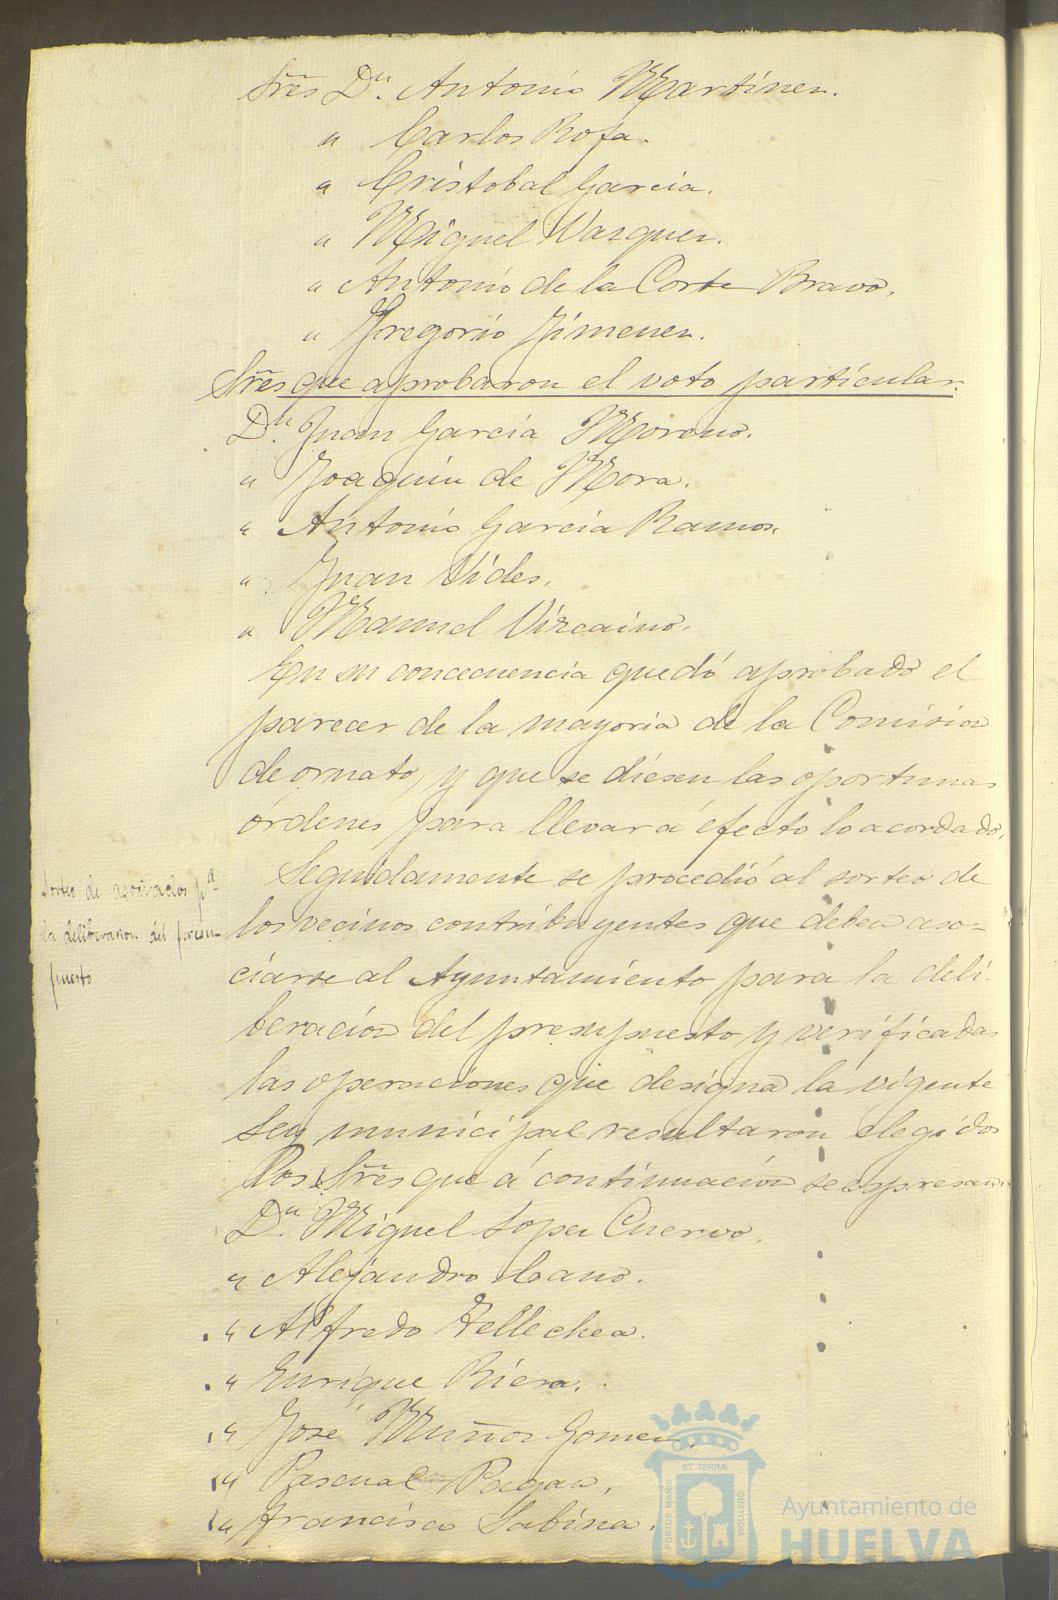 Sres Dn. Antonio Martinez.
" Carlos Rofa.
" Cristobal Garcia.
" Miguel Vazquez.
" Antonio de la Corte Bravo.
" Gregorio Jimenez.
Sres que aprobaron el voto particular.
Dn. Juan Garcia Moreno.
" Joaquin de Mora.
" Antonio Garcia Ramos.
" Juan Vides.
" Manuel Vizcaino.
En su concecuencia quedó aprobado el
parecer de la mayoria de la Comision
de ornato, y que se diesen las oportunas
órdenes para llevar á efecto lo acordado.
Sorteo de asociados pa
la deliberacion del presu-
puesto
Seguidamente se procedió al sorteo de
los vecinos contribuyentes que deben aso-
ciarse al Ayuntamiento para la deli-
beracion del presupuesto y verificadas
las operaciones que designa la vigente
Ley municipal resultaron elegidos
los Sres que á continuación se espresan.
Dn. Miguel Lopez Cuervo.
" Alejandro Cano.
" Alfredo Tellechea.
" Enrique Riera.
" José Muños Gomez.
" Pascual Pagan.
" Francisco Sabina.
PORTUS MARIS
ET TERRÆ
CUSTODIA
Ayuntamiento de
HUELVA